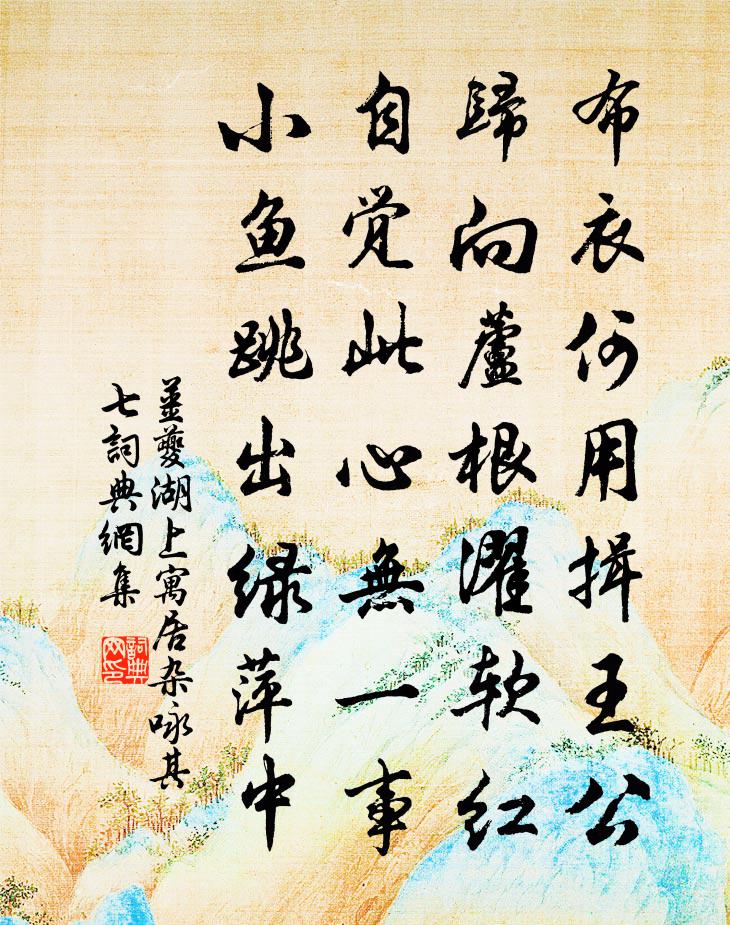 布衣何用揖王公
歸向蘆根濯软红
自觉此心無一事
小鱼跳出绿萍中
姜夔湖上寓居杂咏其
七詞典網集